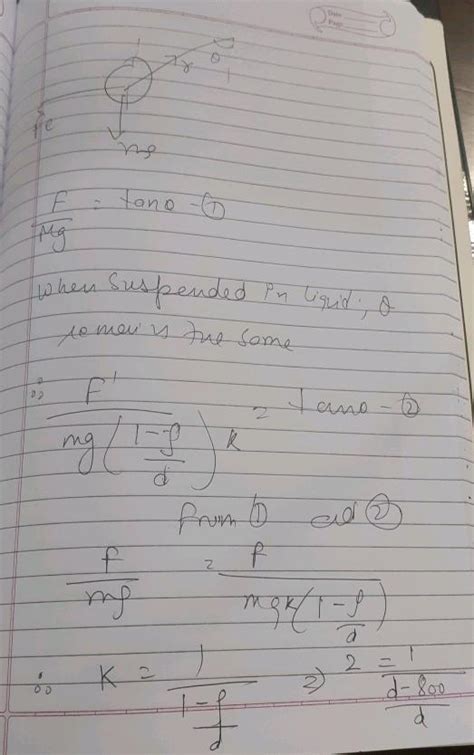 Date
Page
θ
r
Fe
mg
F/Mg = tanθ - ①
when suspended in liquid, θ
remains the same
∴ F'/mg(1-ρ/d)k = tanθ - ②
from ① ad ②
F/mg = F/mgk(1-ρ/d)
∴ K = 1/1-ρ/d ⇒ 2 = 1/d-800/d